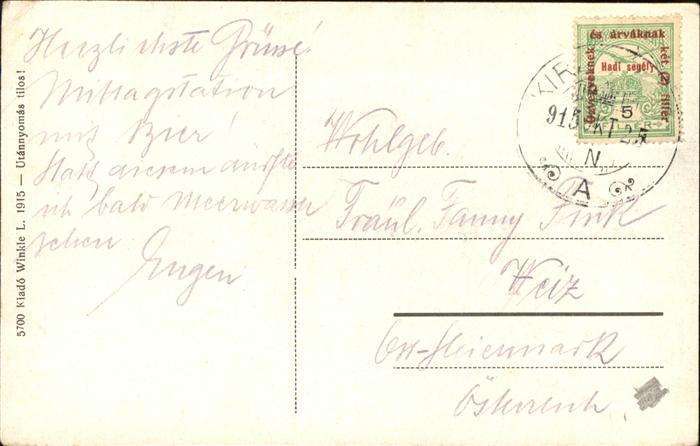 Herzlichste Grüsse!
Mittagstation
mit
bald Meerwasser
sehen
Eugen
Wohlgeb.
Fräul. Fanny Fink
Weiz
Ost-Steiermark
Österreich
5700 Kiadó Winkle L. 1915 — Utánnyomás tilos!
és árváknak
Özvegyeknek
Hadi segély
két (2) fillér
5
KIR
915 OKT 25
N
A